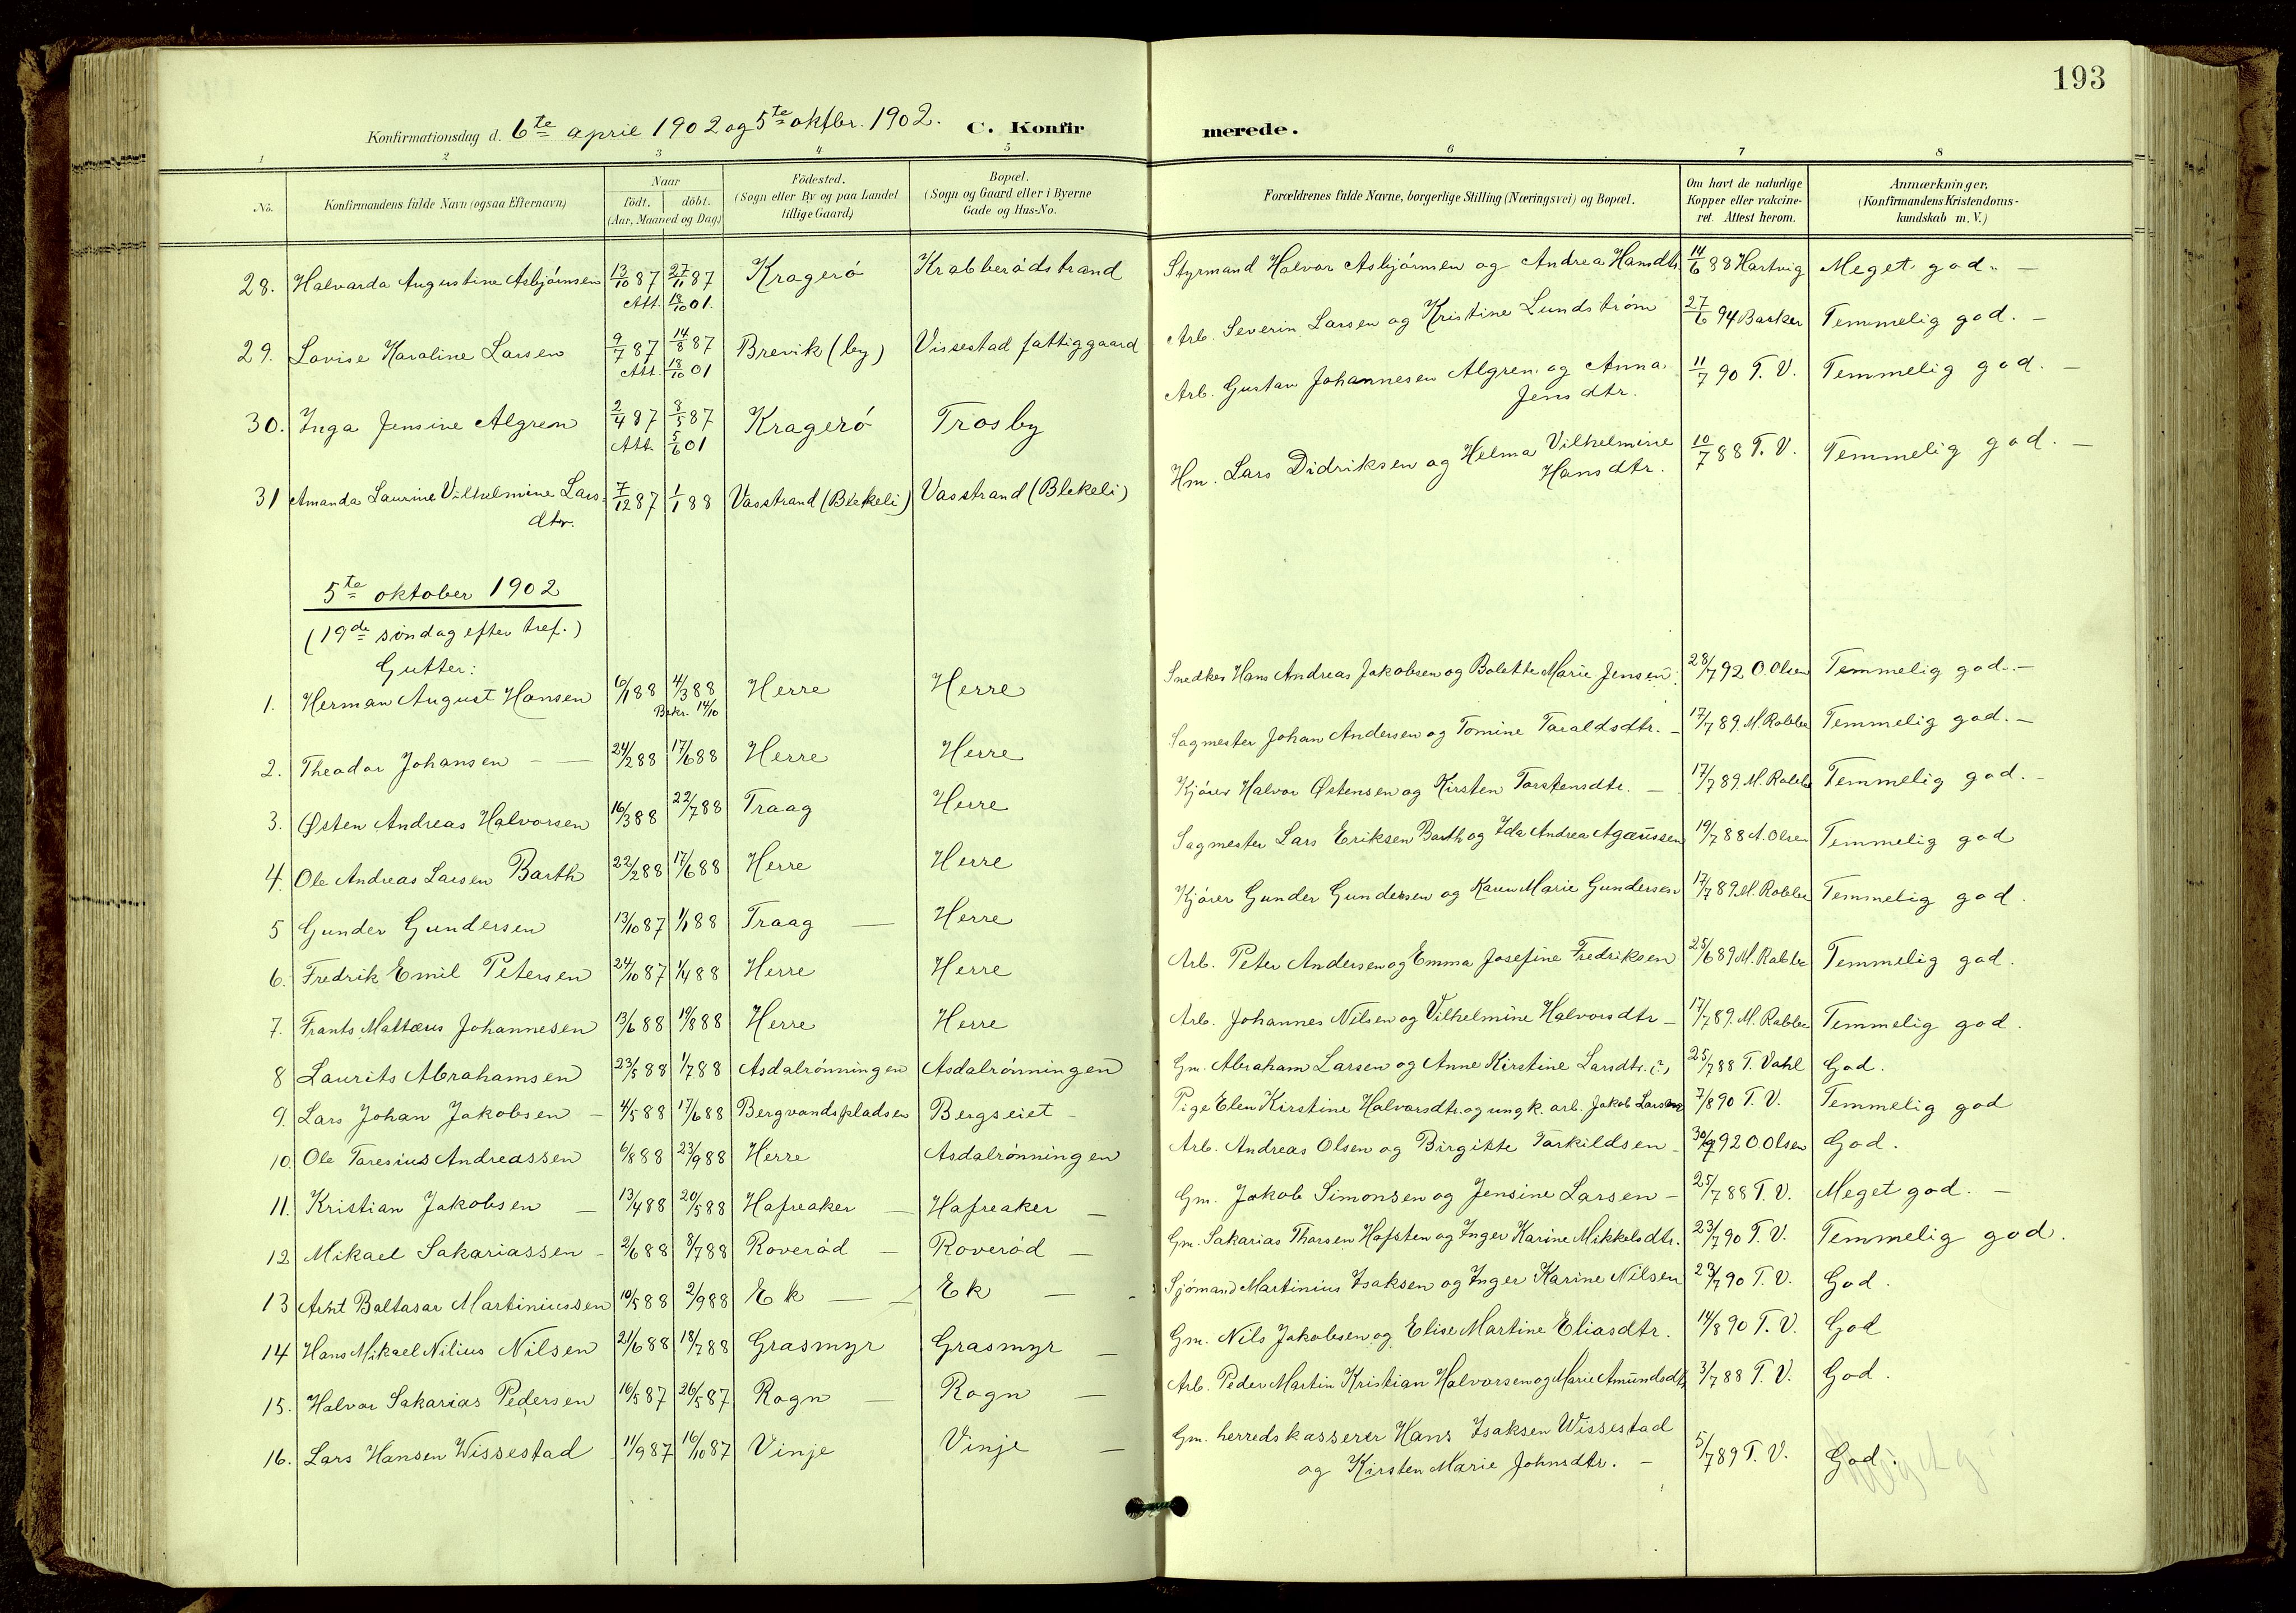 193
Konfirmationsdag d. 6te april 1902 og 5te oktbr. 1902. C. Konfirmerede.
1 2 3 4 5 6 7 8
No. Konfirmandens fulde Navn (ogsaa Efternavn) Naar født. døbt. (Aar, Maaned og Dag) Födested. (Sogn eller By og paa Landet tillige Gaard) Bopæl. (Sogn og Gaard eller i Byerne Gade og Hus-No. Forældrenes fulde Navne, borgerlige Stilling (Næringsvei) og Bopæl. Om havt de naturlige Kopper eller vakcineret. Attest herom. Anmærkninger, (Konfirmandens Kristendomskundskab m. V.)
28. Halvarda Augustine Asbjørnsen 13/10 87 27/11 87 Att. 18/10 01. Kragerø Krabberødstrand Styrmand Halvor Asbjørnsen og Andrea Hansdtr 14/6 88 Hartvig Meget god. —
29. Lovise Karoline Larsen 9/7 87 14/8 87 Att. 18/10 01 Brevik (by) Vissestad fattiggaard Arb. Severin Larsen og Kristine Lundstrøm 27/6 94 Barker Temmelig god. —
30. Inga Jensine Algren 2/4 87 8/5 87 Att. 5/6 01 Kragerø Trosby Arb. Gustav Johannesen Algren og Anna Jensdtr. 11/7 90 T. V. Temmelig god. —
31 Amanda Laurine Vilhelmine Larsdtr. 7/12 87 1/1 88 Vasstrand (Blekeli) Vasstrand (Blekeli) Hm. Lars Didriksen og Helma Vilhelmine Hansdtr. 10/7 88 T. V. Temmelig god. —
5te oktober 1902
(19de søndag efter tref.)
Gutter:
1. Herman August Hansen 6/1 88 4/3 88 Bekr. 14/10 Herre Herre Snedker Hans Andreas Jakobsen og Bolette Marie Jensen. 28/7 92 O. Olsen Temmelig god. —
2. Theodor Johansen — 24/2 88 17/6 88 Herre Herre Sagmester Johan Andersen og Tomine Taraldsdtr. — 17/7 89. M. Rabbe Temmelig god. —
3. Østen Andreas Halvorsen 16/3 88 22/7 88 Traag Herre Kjører Halvor Østensen og Kirsten Torstensdtr. — 17/7 89. M. Rabbe Temmelig god. —
4. Ole Andreas Larsen Barth 22/2 88 17/6 88 Herre Herre Sagmester Lars Eriksen Barth og Ida Andrea Agaussen 19/7 88 A. Olsen Temmelig god
5 Gunder Gundersen 13/10 87 1/1 88 Traag — Herre Kjører Gunder Gundersen og Karen Marie Gundersen 17/7 89. M. Rabbe Temmelig god.
6. Fredrik Emil Petersen 24/10 87 1/4 88 Herre Herre Arb. Peter Andersen og Emma Josefine Fredriksen 25/6 89 M. Rabbe Temmelig god.
7. Frants Mattæus Johannesen 13/6 88 19/8 88 Herre Herre Arb. Johannes Nilsen og Vilhelmine Halvorsdtr — 17/7 89. M. Rabbe Temmelig god.
8 Laurits Abrahamsen 23/5 88 1/7 88 Asdalrønningen Asdalrønningen Gm. Abraham Larsen og Anne Kirstine Larsdtr. (?) 25/7 88 T. Vahl God.
9. Lars Johan Jakobsen — 4/5 88 17/6 88 Bergvandspladsen Bergseiet — Pige Elen Kirstine Halvorsdtr. og ungk. arb. Jakob Larsen 7/8 90 T. V. Temmelig god
10. Ole Taresius Andreassen 6/8 88 23/9 88 Herre Asdalrønningen Arb. Andreas Olsen og Birgitte Tarkildsen — 30/7 92 O. Olsen God.
11. Kristian Jakobsen — 13/4 88 20/5 88 Hafreaker — Hafreaker — Gm. Jakob Simonsen og Jensine Larsen — 25/7 88 T. V. Meget god. —
12 Mikael Sakariassen — 2/6 88 8/7 88 Roverød — Roverød — Gm. Sakarias Thorsen Hafsten og Inger Karine Mikkelsdtr. 23/7 90 T. V. Temmelig god.
13 Arnt Baltasar Martiniussen 10/5 88 2/9 88 Ek — Ek — Sjømand Martinius Isaksen og Inger Karine Nilsen 23/7 90 T. V. God.
14 Hans Mikael Nilius Nilsen 21/6 88 18/7 88 Grasmyr Grasmyr — Gm. Nils Jakobsen og Elise Martine Eliasdtr. 14/8 90 T. V. God
15. Halvor Sakarias Pedersen 16/5 87 26/5 87 Rogn — Rogn — Arb. Peder Martin Kristian Halvorsen og Marie Amundsdtr 3/7 88 T. V. God.
16. Lars Hansen Wissestad 11/9 87 16/10 87 Vinje Vinje — Gm. herredskasserer Hans Isaksen Wissestad og Kirsten Marie Johnsdtr. — 5/7 89 T. V. God.